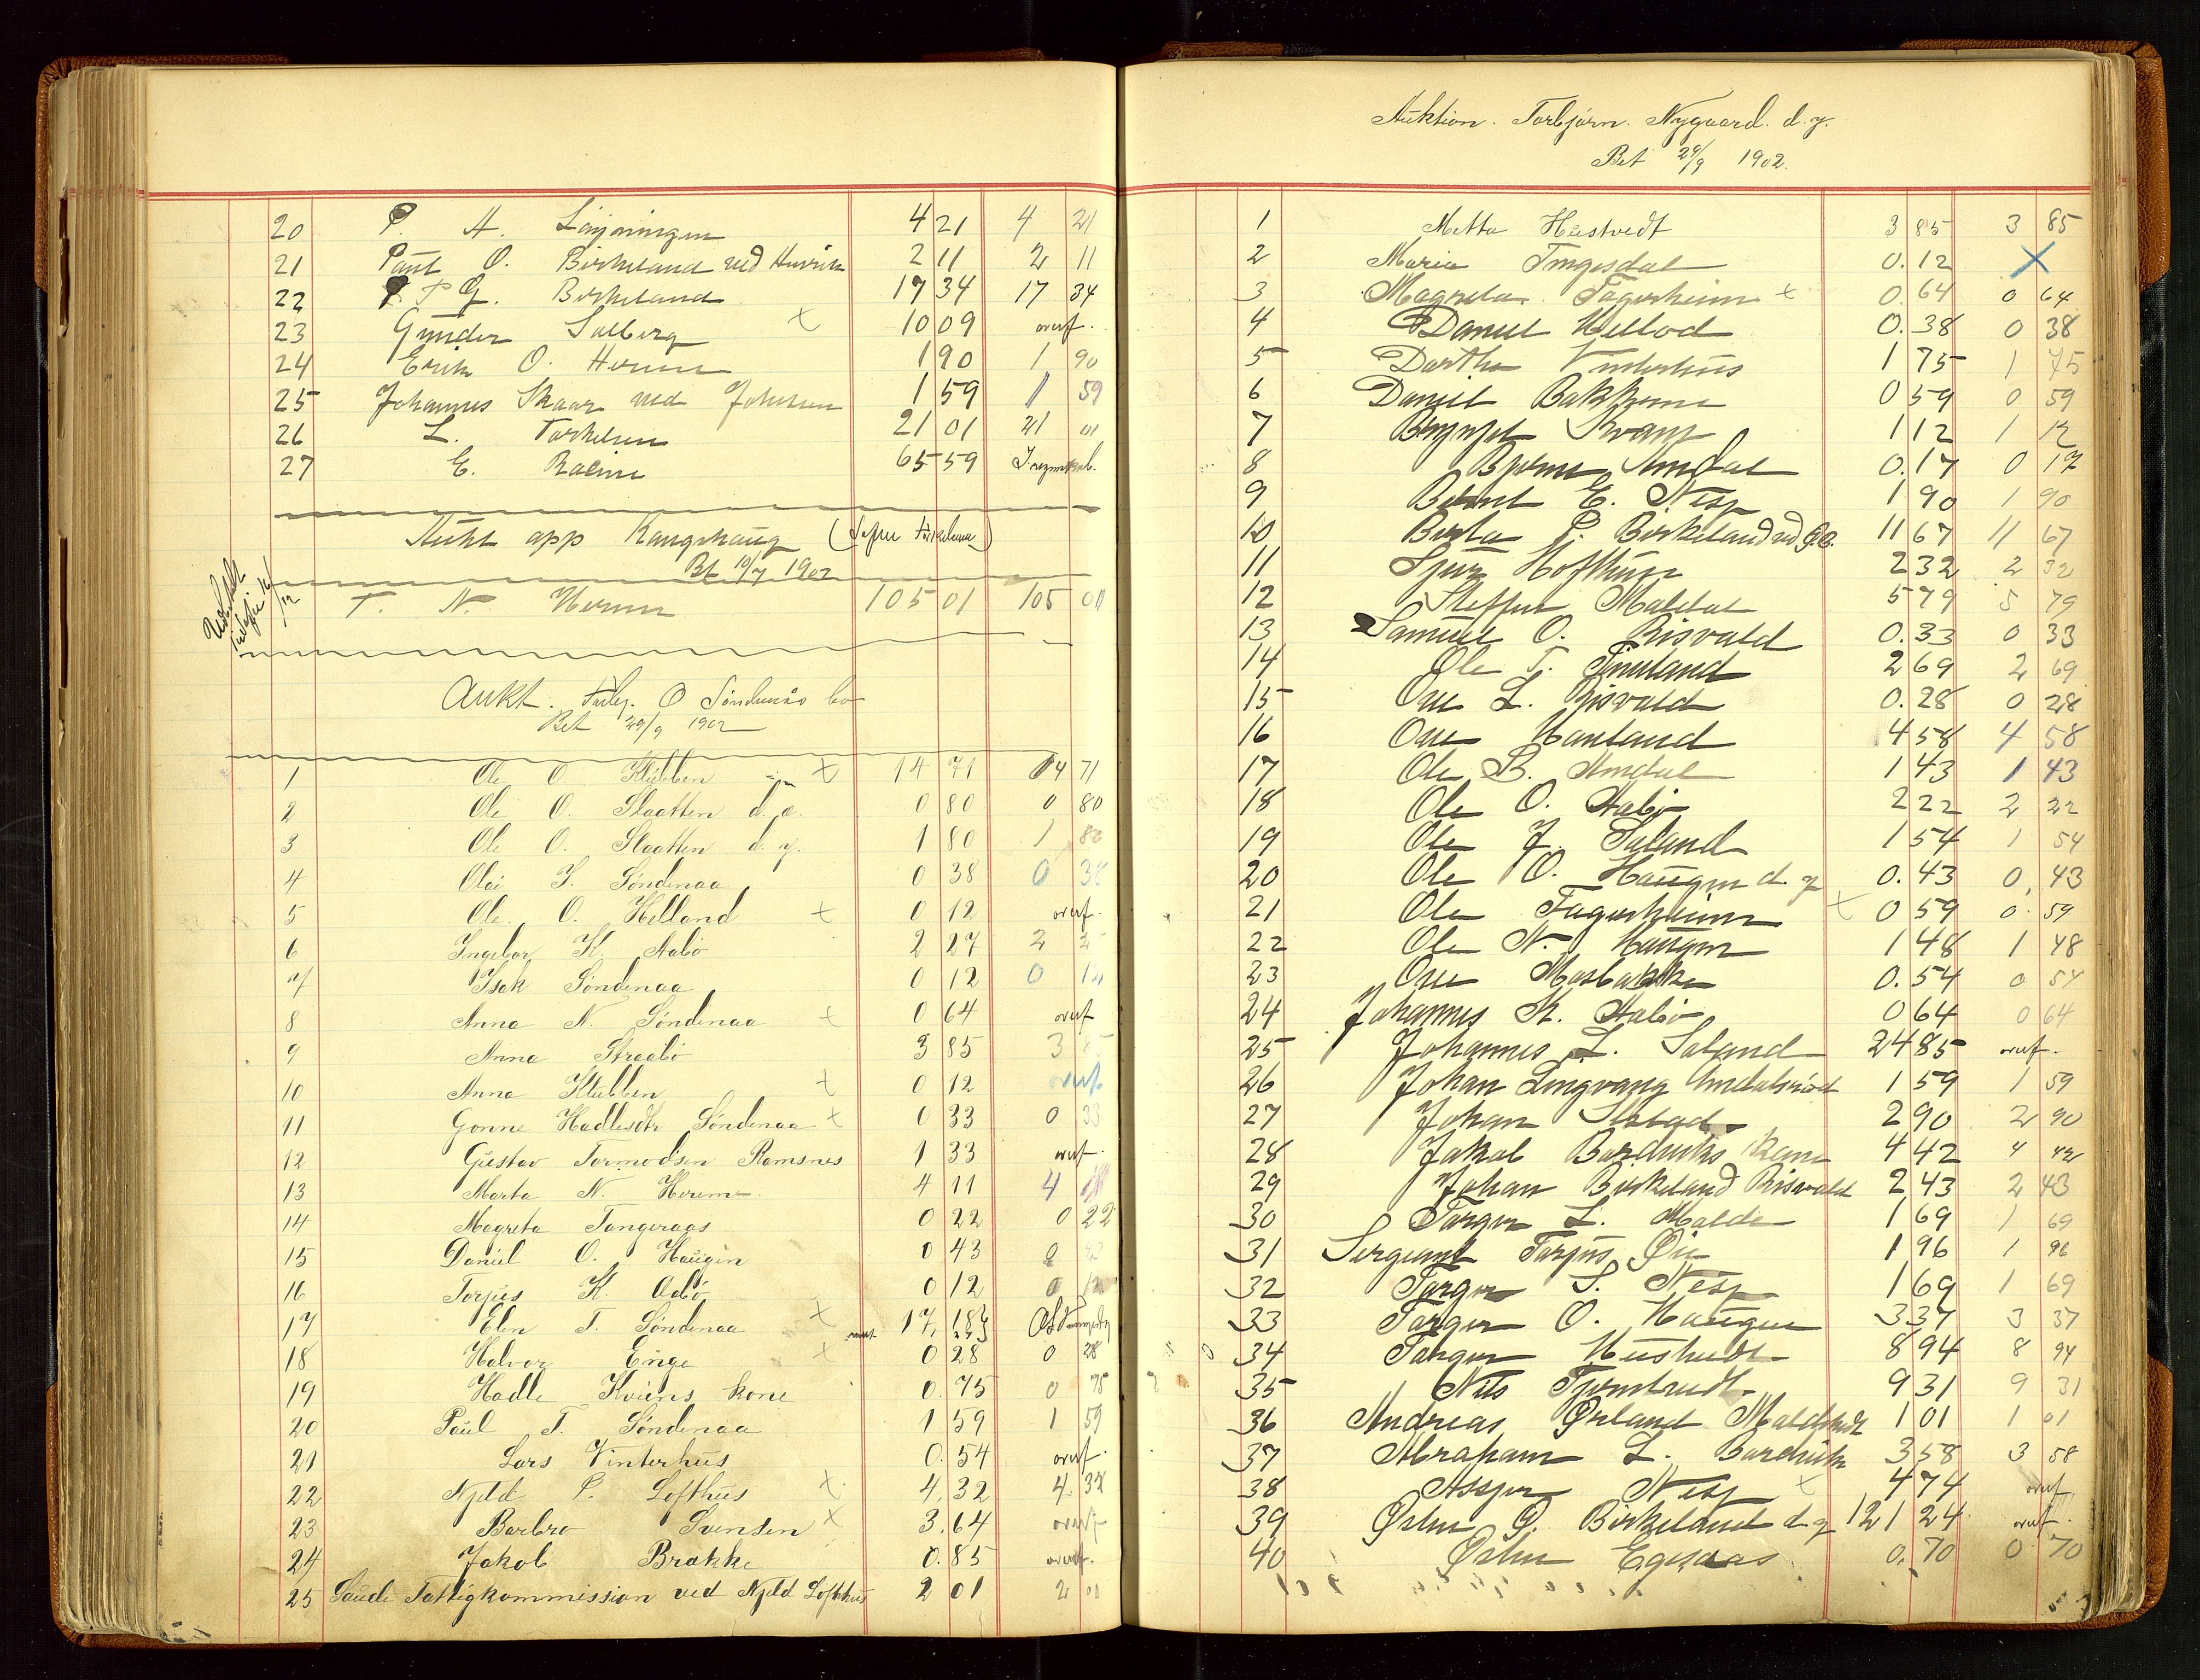 20 P. A. Løyningen 4 21 4 21
21 Paul O. Birkeland ved Henrik 2 11 2 11
22 P. G. Birkeland 17 34 17 34
23 Gunder Solberg × 10 09 overf.
24 Erik O. Herum 1 90 1 90
25 Johannes Skaar ved Johnsen 1 59 1 59
26 L. Torkelsen 21 01 21 01
27 E. Racine 65 59
Aukt app Rangshaug
Bt 10/7 1902
T. N. Herum 105 01 105 01
Aukt. O Søndenaas bo
Bet 29/9 1902
1 Ole O. Klubben × 14 71 14 71
2 Ole O. Slaatten d. æ. 0 80 0 80
3 Ole O. Slaatten d. y. 1 80 1 80
4 Olai T. Søndenaa 0 38 0 38
5 Ole O. Helland × 0 12 overf.
6 Ingebor K. Aabø 2 27 2 27
7 Isak Søndenaa 0 12 0 12
8 Anna N. Søndenaa × 0 64 overf
9 Anna Straabø 3 85 3
10 Anna Klubben × 0 12 overf
11 Gonne Hadlesdtr Søndenaa × 0 33 0 33
12 Gustav Tormodsen Ramsnes 1 33 overf.
13 Marta N. Herum 4 11 4 11
14 Magreta Tangeraas 0 22 0 22
15 Daniel O. Haugen 0 43 0 43
16 Torjus K. Aabø 0 12 0 12
17 Elen T. Søndenaa × 17, 18
18 Halvor Enge × 0 28 0 28
19 Hadle Kviens kone 0. 75 0 75
20 Paul T. Søndenaa 1 59 1 59
21 Lars Vinterhus 0. 54 overf.
22 Njeld P. Lofthus × 4, 32 4. 32
23 Barbro Svensen × 3. 64 overf
24 Jakob Brakke 0. 85 overf.
25 Saude Fattigkommission ved Njeld Lofthus 2 01 2 01
Auktion. Torbjørn. Nygaard. d. y.
Bet 29/9 1902.
1 Metta Hustvedt 3 85 3 85
2 Maria Tengesdal 0. 12 ×
3 Magreta Fagerheim × 0. 64 0 64
4 Daniel Hellod 0. 38 0 38
5 Dorthea Vinterhus 1 75 1 75
6 Daniel Bakkerne 0 59 0 59
7 Brynjel Kvam 1 12 1 12
8 Bjørne Amdal 0. 17 0 17
9 Berent E. Nesp 1 90 1 90
10 Berta P. Birkeland ved G.B. 11 67 11 67
11 Sjur Hofthun 2 32 2 32
12 Steffen Maldal 5 79 5 79
13 Samuel O. Risvold 0. 33 0 33
14 Ole T. Finnland 2 69 2 69
15 One L. Risvold 0. 28 0 28
16 One Hauland 4 58 4 58
17 Ole B. Amdal 1 43 1 43
18 Ole O. Aabø 2 22 2 22
19 Ole J. Saland 1 54 1 54
20 Ole O. Haugen d. y 0. 43 0. 43
21 Ole Fagerheim × 0 59 0. 59
22 Ole N. Haugen 1 48 1 48
23 One Mosbakka 0. 54 0 54
24 Johannes K. Aabø 0 64 0 64
25 Johannes L. Saland 24 85 overf.
26 Johan Lingvang Amdalsnød 1 59 1 59
27 Johan 2 90 2 90
28 Jakob Bardviks Kone 4 42 4 42
29 Johan Birkeland Risvold 2, 43 2 43
30 Targer L. Malde 1 69 1 69
31 Sergeant Torjus Øie 1 96 1 96
32 Targer S. Nesp 1 69 1 69
33 Targer O. Haugen 3 37 3 37
34 Targer Hustvedt 8 94 8 94
35 Nils Tjernstvedt 9 31 9 31
36 Andreas Ørland 1 01 1 01
37 Abraham L. Bardvik 3 58 3 58
38 Assjer Nesp × 4 74 overf.
39 Østen G. Birkeland d. y 121 24 overf.
40 Østen Egesaas 0. 70 0 70